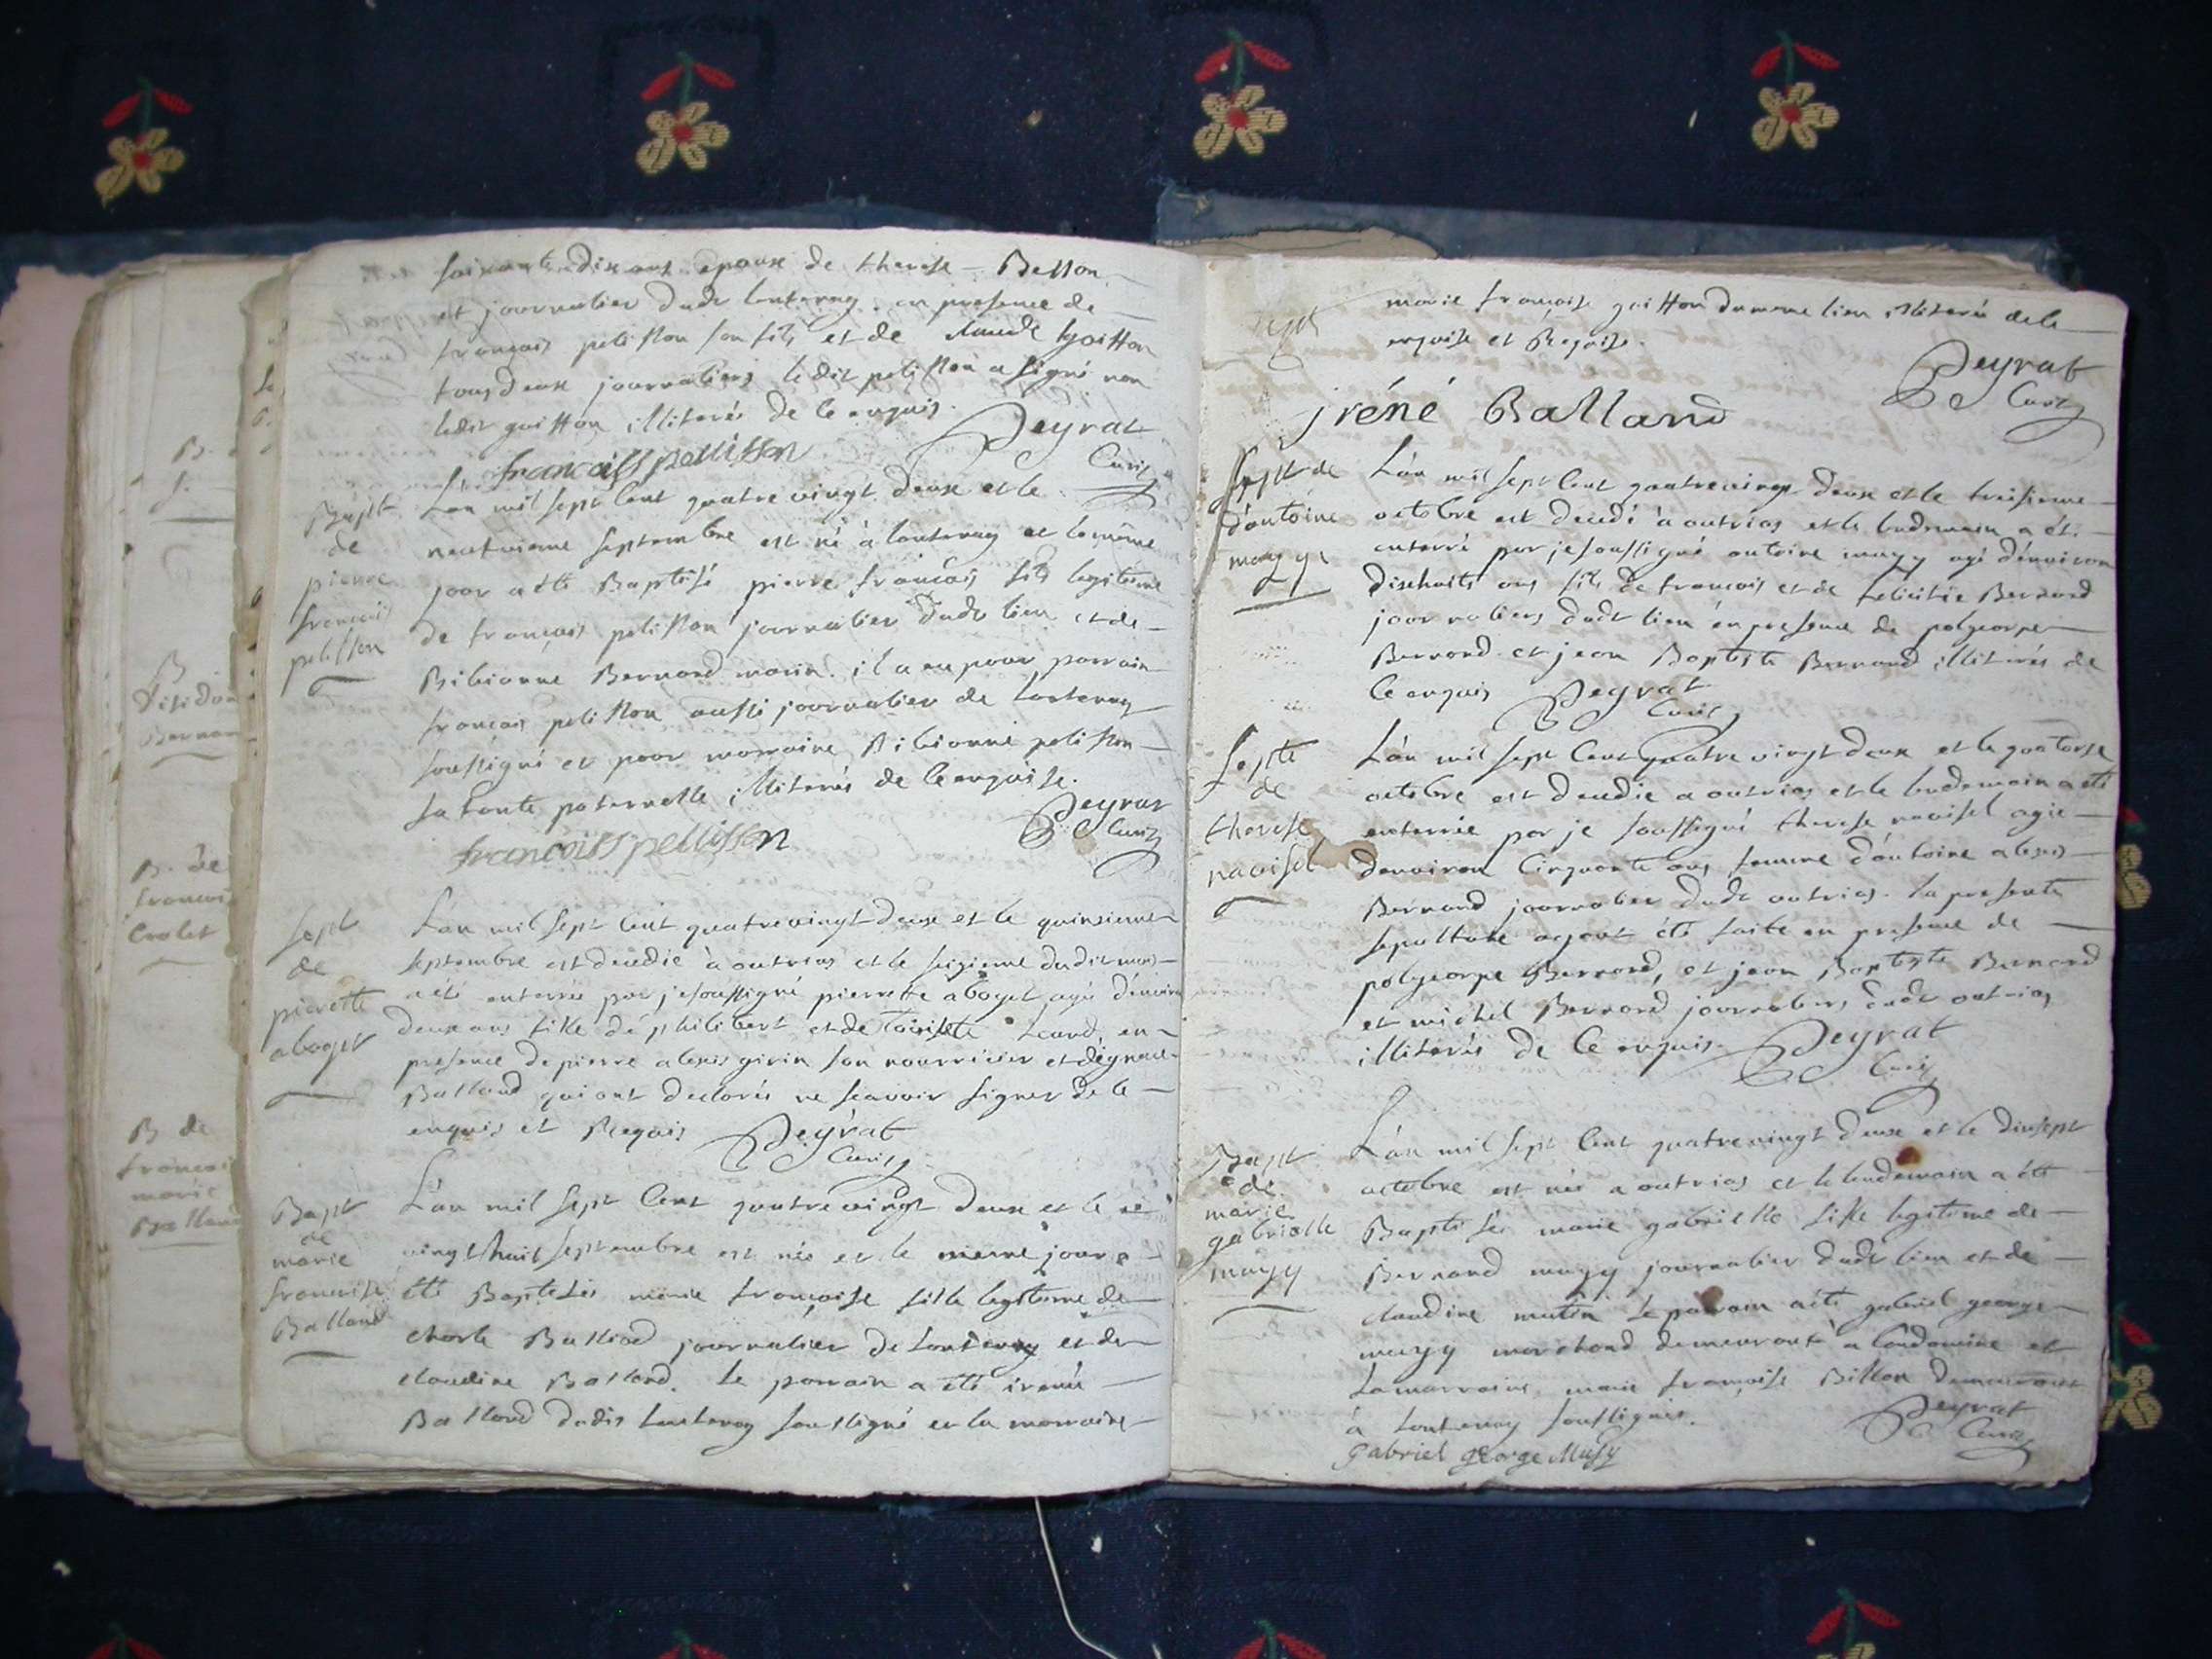 soixante dix ans epoux de therese Besson
et journalier dudt lantenay en presence de
françois pelisson son fils et de claude goitton
tous deux journaliers ledit pelisson a signé non
ledit goitton illiterés de ce enquis.
francoiss pellisson
Peyrat
Curé
Bapt
de
pierre
françois
pelisson
L'an mil sept cent quatre vingt deux et le
neufvieme septembre est né à lantenay et le même
jour a été Baptisé pierre françois fils legitime
de françois pelisson journalier dudt lieu et de
Bibianne Bernard mariés. il a eu pour parrain
françois pelisson aussi journalier de lantenay
soussigné et pour marraine Bibianne pelisson
sa tante paternelle illiterés de ce enquise.
francoiss pellisson
Peyrat
Curé
sept
de
pierrette
aboyet
L'an mil sept cent quatre vingt deux et le quinsieme
septembre est decedie à outriaz et le seizieme dudit mois
a été enterrée par je soussigné pierrette aboyet agée d'environ
deux ans fille de philibert et de en
presence de pierre alexis girin son nourricier et d'ignace
Balland qui ont declarés ne scavoir signer de ce
enquis et Requis
Peyrat
Curé
Bapt
de
marie
françoise
Balland
L'an mil sept Cent quatre vingt deux et le
vingt huit septembre est née et le meme jour a
été Baptisée marie françoise fille legitime de
charle Balland journalier de lantenay et de
claudine Balland. Le parrain a été irenée
Balland dudit lantenay soussigné et la marraine
marie françoise goitton du meme lieu illiterée de ce
enquise et Requise.
Peyrat
Curé
jréné Balland
sept de
d'antoine
mazyy
L'an mil sept cent quatre vingt deux et le treisieme
octobre est decedé à outriaz et le lendemain a été
enterré par je soussigné antoine mazyy agé d'environ
dixhuits ans fils de francois et de felicitée Bernard
journaliers dudt lieu en presence de polycarpe
Bernard et jean Baptiste Bernard illiterés de
ce enquis
Peyrat
Curé
septe
de
therese
navisel
L'an mil sept cent quatre vingt deux et le quatorse
octobre est decedie a outriaz et le lendemain a été
enterrée par je soussigné therese navisel agée
d'environ cinquante ans femme d'antoine alexis
Bernard journalier dudt outriaz. la presente
sepulture ayant été faite en presence de
polycarpe Bernard, et jean Baptiste Bernard
et michel Bernard journaliers dudt outriaz
illiterés de ce enquis.
Peyrat
Curé
Bapt
de
marie
gabrielle
mazyy
L'an mil sept cent quatre vingt deux et le dixsept
octobre est née a outriaz et le lendemain a été
Baptisée marie gabrielle fille legitime de
Bernard mazyy journalier dudt lieu et de
claudine mutin le parain a été gabriel george
mazyy marchand demeurant a Condamine et
la marraine marie françoise Billon demeurant
à lantenay soussignés.
Peyrat
Curé
gabriel george Musy
B. de
francois
Crolet
B de
francois
marie
Balland